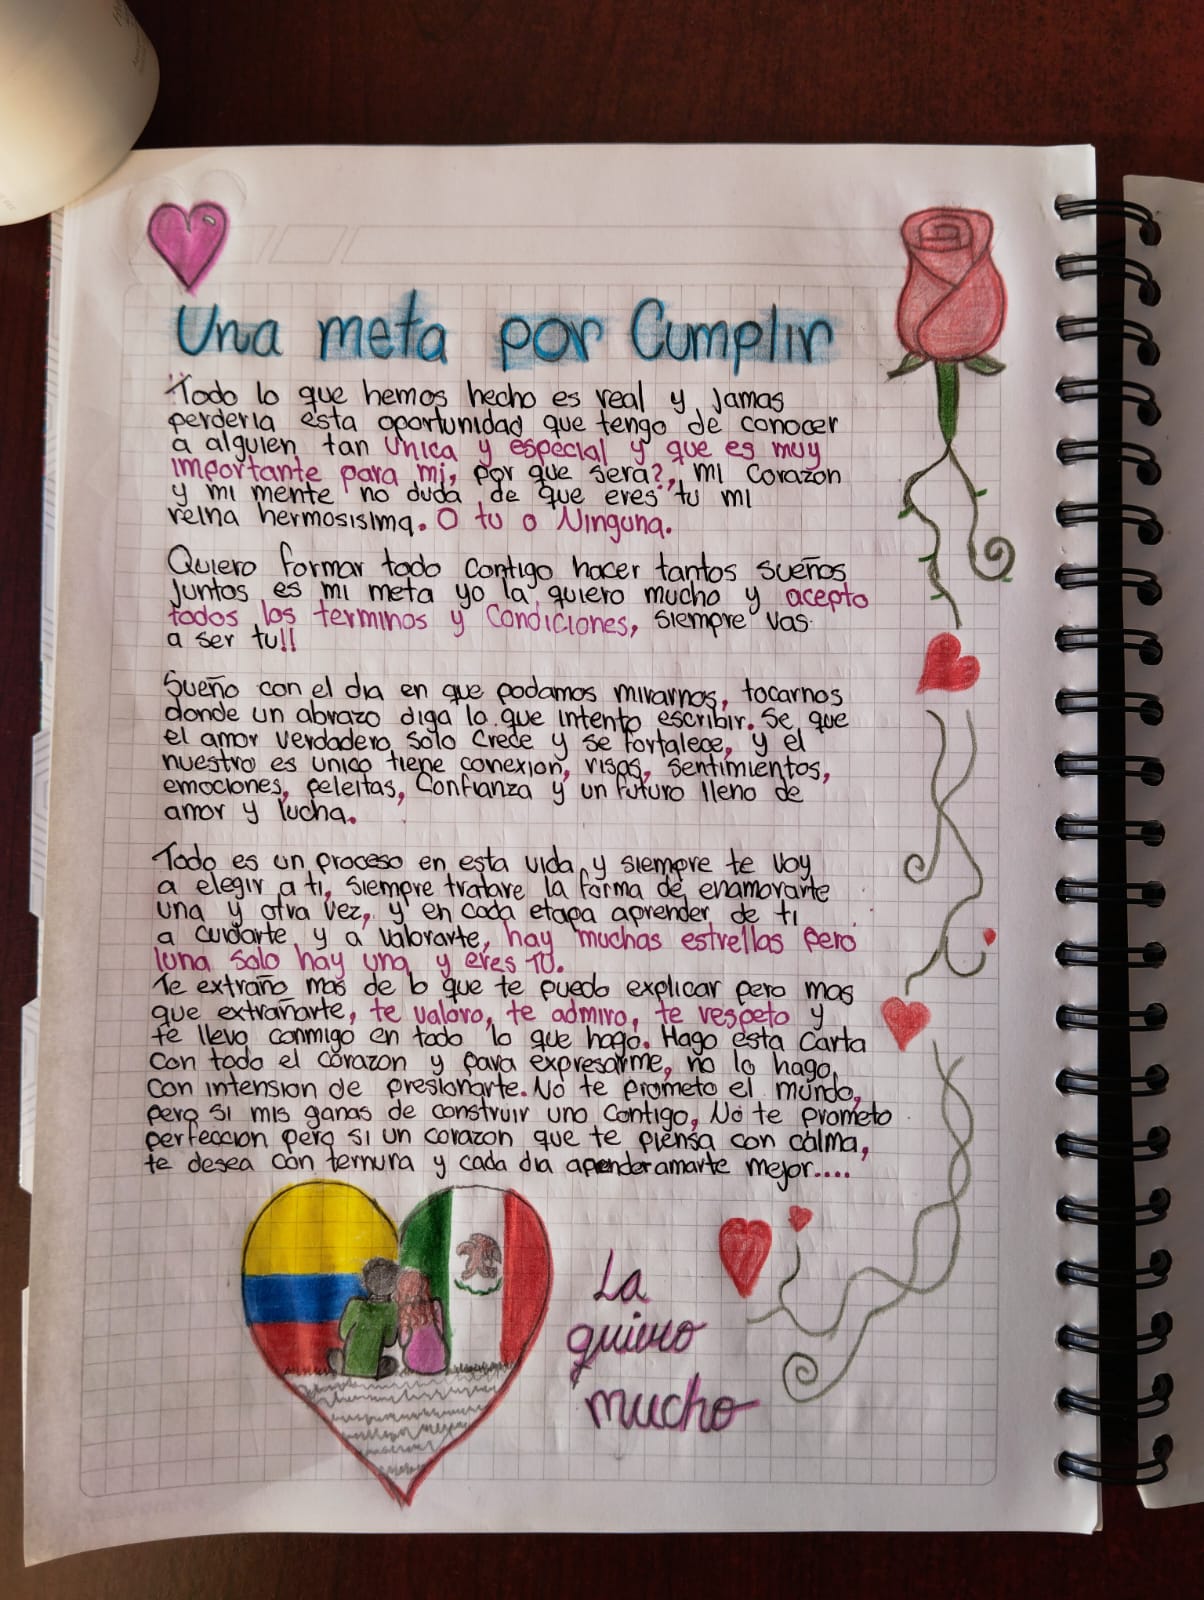 Una meta por Cumplir
Todo lo que hemos hecho es real y Jamas
perderia esta oportunidad que tengo de conocer
a alguien tan unica y especial y que es muy
importante para mi, por que sera?, mi corazon
y mi mente no duda de que eres tu mi
reina hermosisima. O tu o Ninguna.
Quiero formar todo contigo hacer tantos sueños
Juntos es mi meta yo la quiero mucho y acepto
todos los terminos y Condiciones, siempre vas
a ser tu!!
Sueño con el dia en que podamos mirarnos, tocarnos
donde un abrazo diga lo que intento escribir. Se que
el amor verdadero solo crece y se fortalece, y el
nuestro es unico tiene conexion, risas, sentimientos,
emociones, peleitas, Confianza y un futuro lleno de
amor y lucha.
Todo es un proceso en esta vida y siempre te voy
a elegir a ti, siempre tratare la forma de enamorarte
una y otra vez, y en cada etapa aprender de ti
a cuidarte y a valorarte, hay muchas estrellas pero
luna solo hay una y eres TU.
Te extraño mas de lo que te puedo explicar pero mas
que extrañarte, te valoro, te admiro, te respeto y
te llevo conmigo en todo lo que hago. Hago esta Carta
con todo el corazon y para expresarme, no lo hago
con intension de presionarte. No te prometo el mundo,
pero si mis ganas de construir uno Contigo, No te prometo
perfeccion pero si un corazon que te piensa con calma,
te desea con ternura y cada dia aprender amarte mejor....
La
quiero
mucho